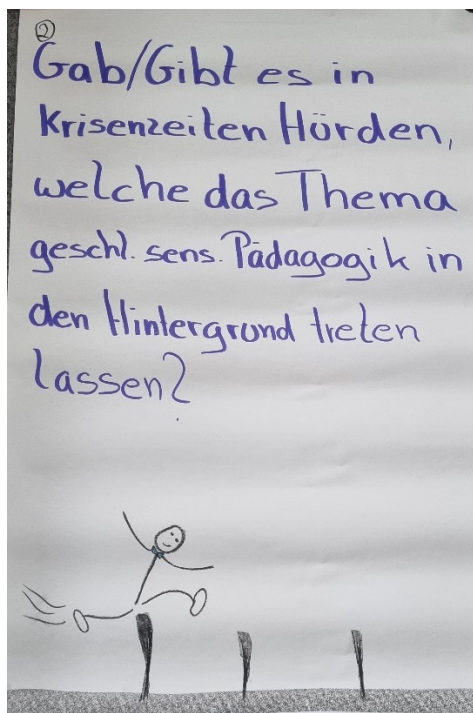 ②
Gab/Gibt es in
Krisenzeiten Hürden,
welche das Thema
geschl. sens. Pädagogik in
den Hintergrund treten
lassen?